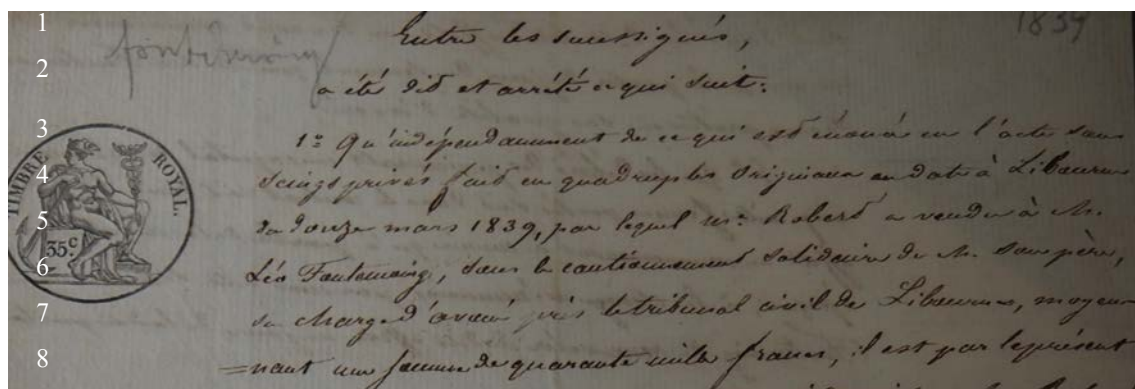 1839
Entre les soussignés,
a été dit et arrêté ce qui suit:
1º Qu'indépendamment de ce qui est énoncé en l'acte sous
seings privés fait en quadruples originaux en date à Libourne
du douze mars 1839, par lequel Mr. Robert a vendu à M.
Léo Fontemoing, sous le cautionnement solidaire de M. son père,
sa charge d'avoué près le tribunal civil de Libourne, moyen-
=nant une somme de quarante mille francs, il est par le présent
TIMBRE ROYAL.
35 c.
1
2
3
4
5
6
7
8